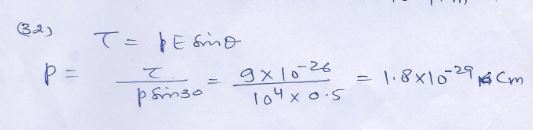 (32) τ = pE sinθ
p = τ / p sin30 = 9×10^-26 / 10^4 × 0.5 = 1.8×10^-29 cm